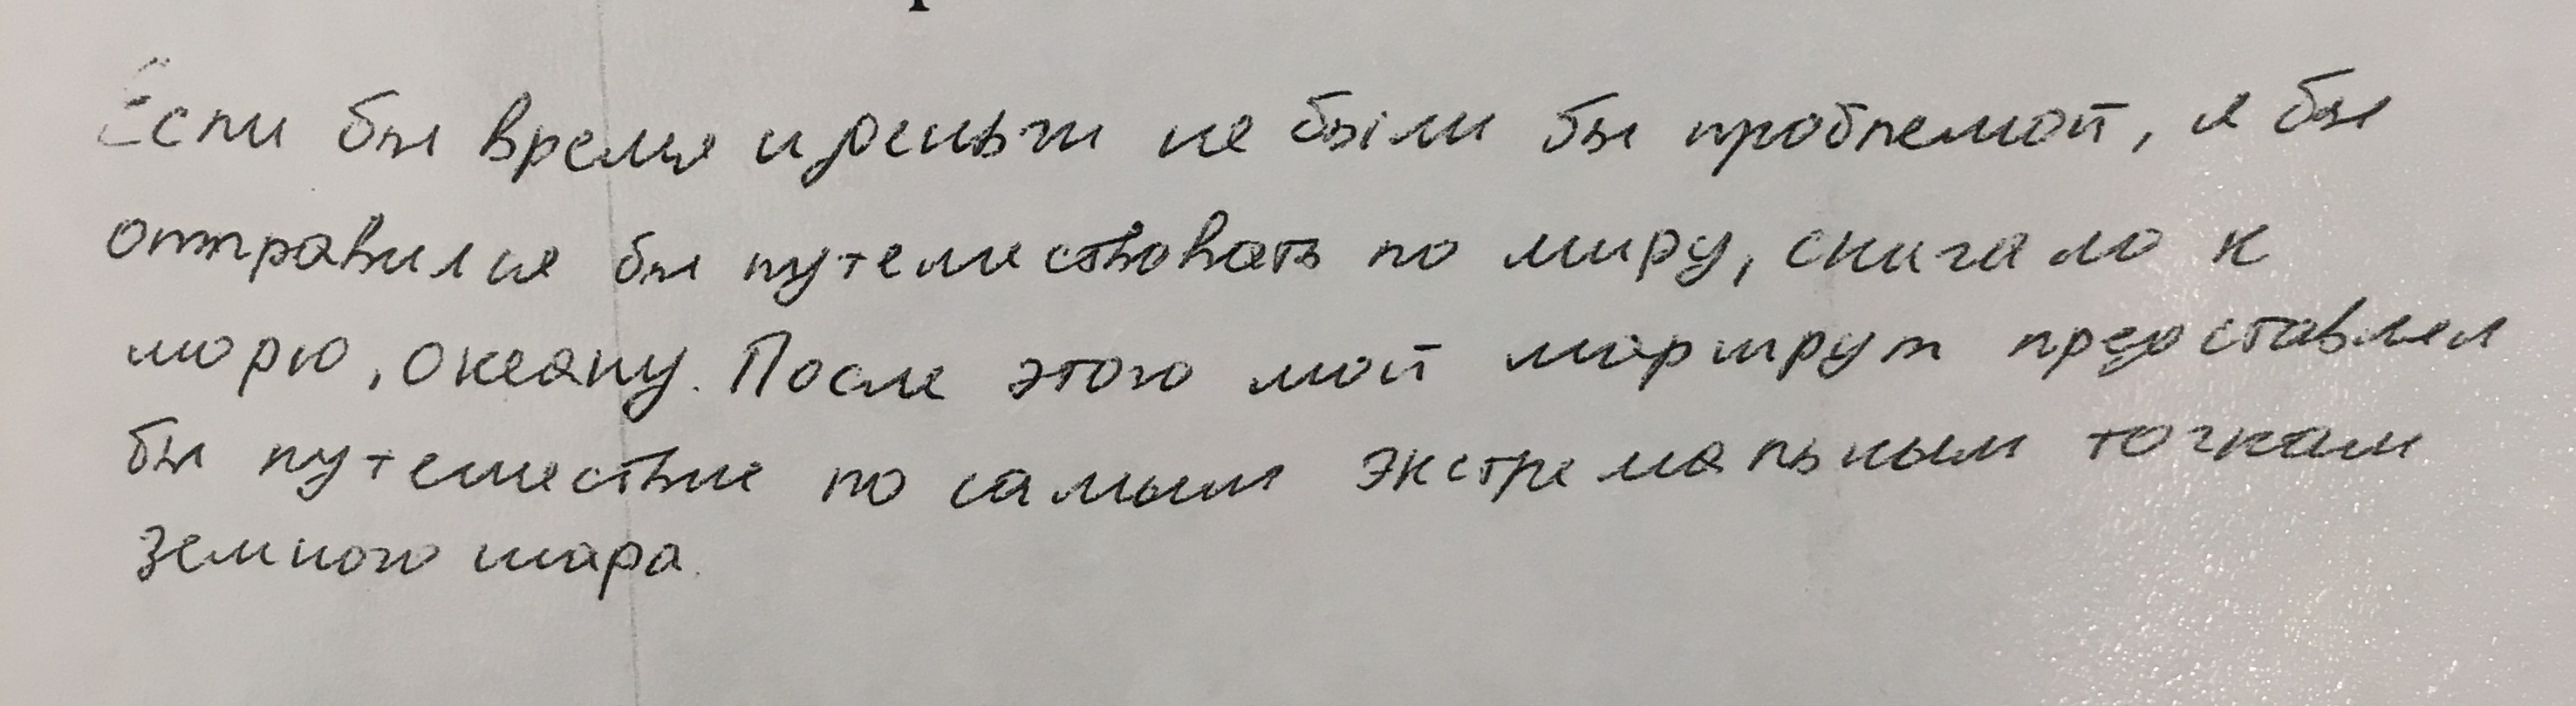 Если бы время и деньги не были бы проблемой, я бы
отправился бы путешествовать по миру, сначало к
морю, океану. После этого мой маршрут предоставлял
бы путешествие по самым экстремальным точкам
земного шара.